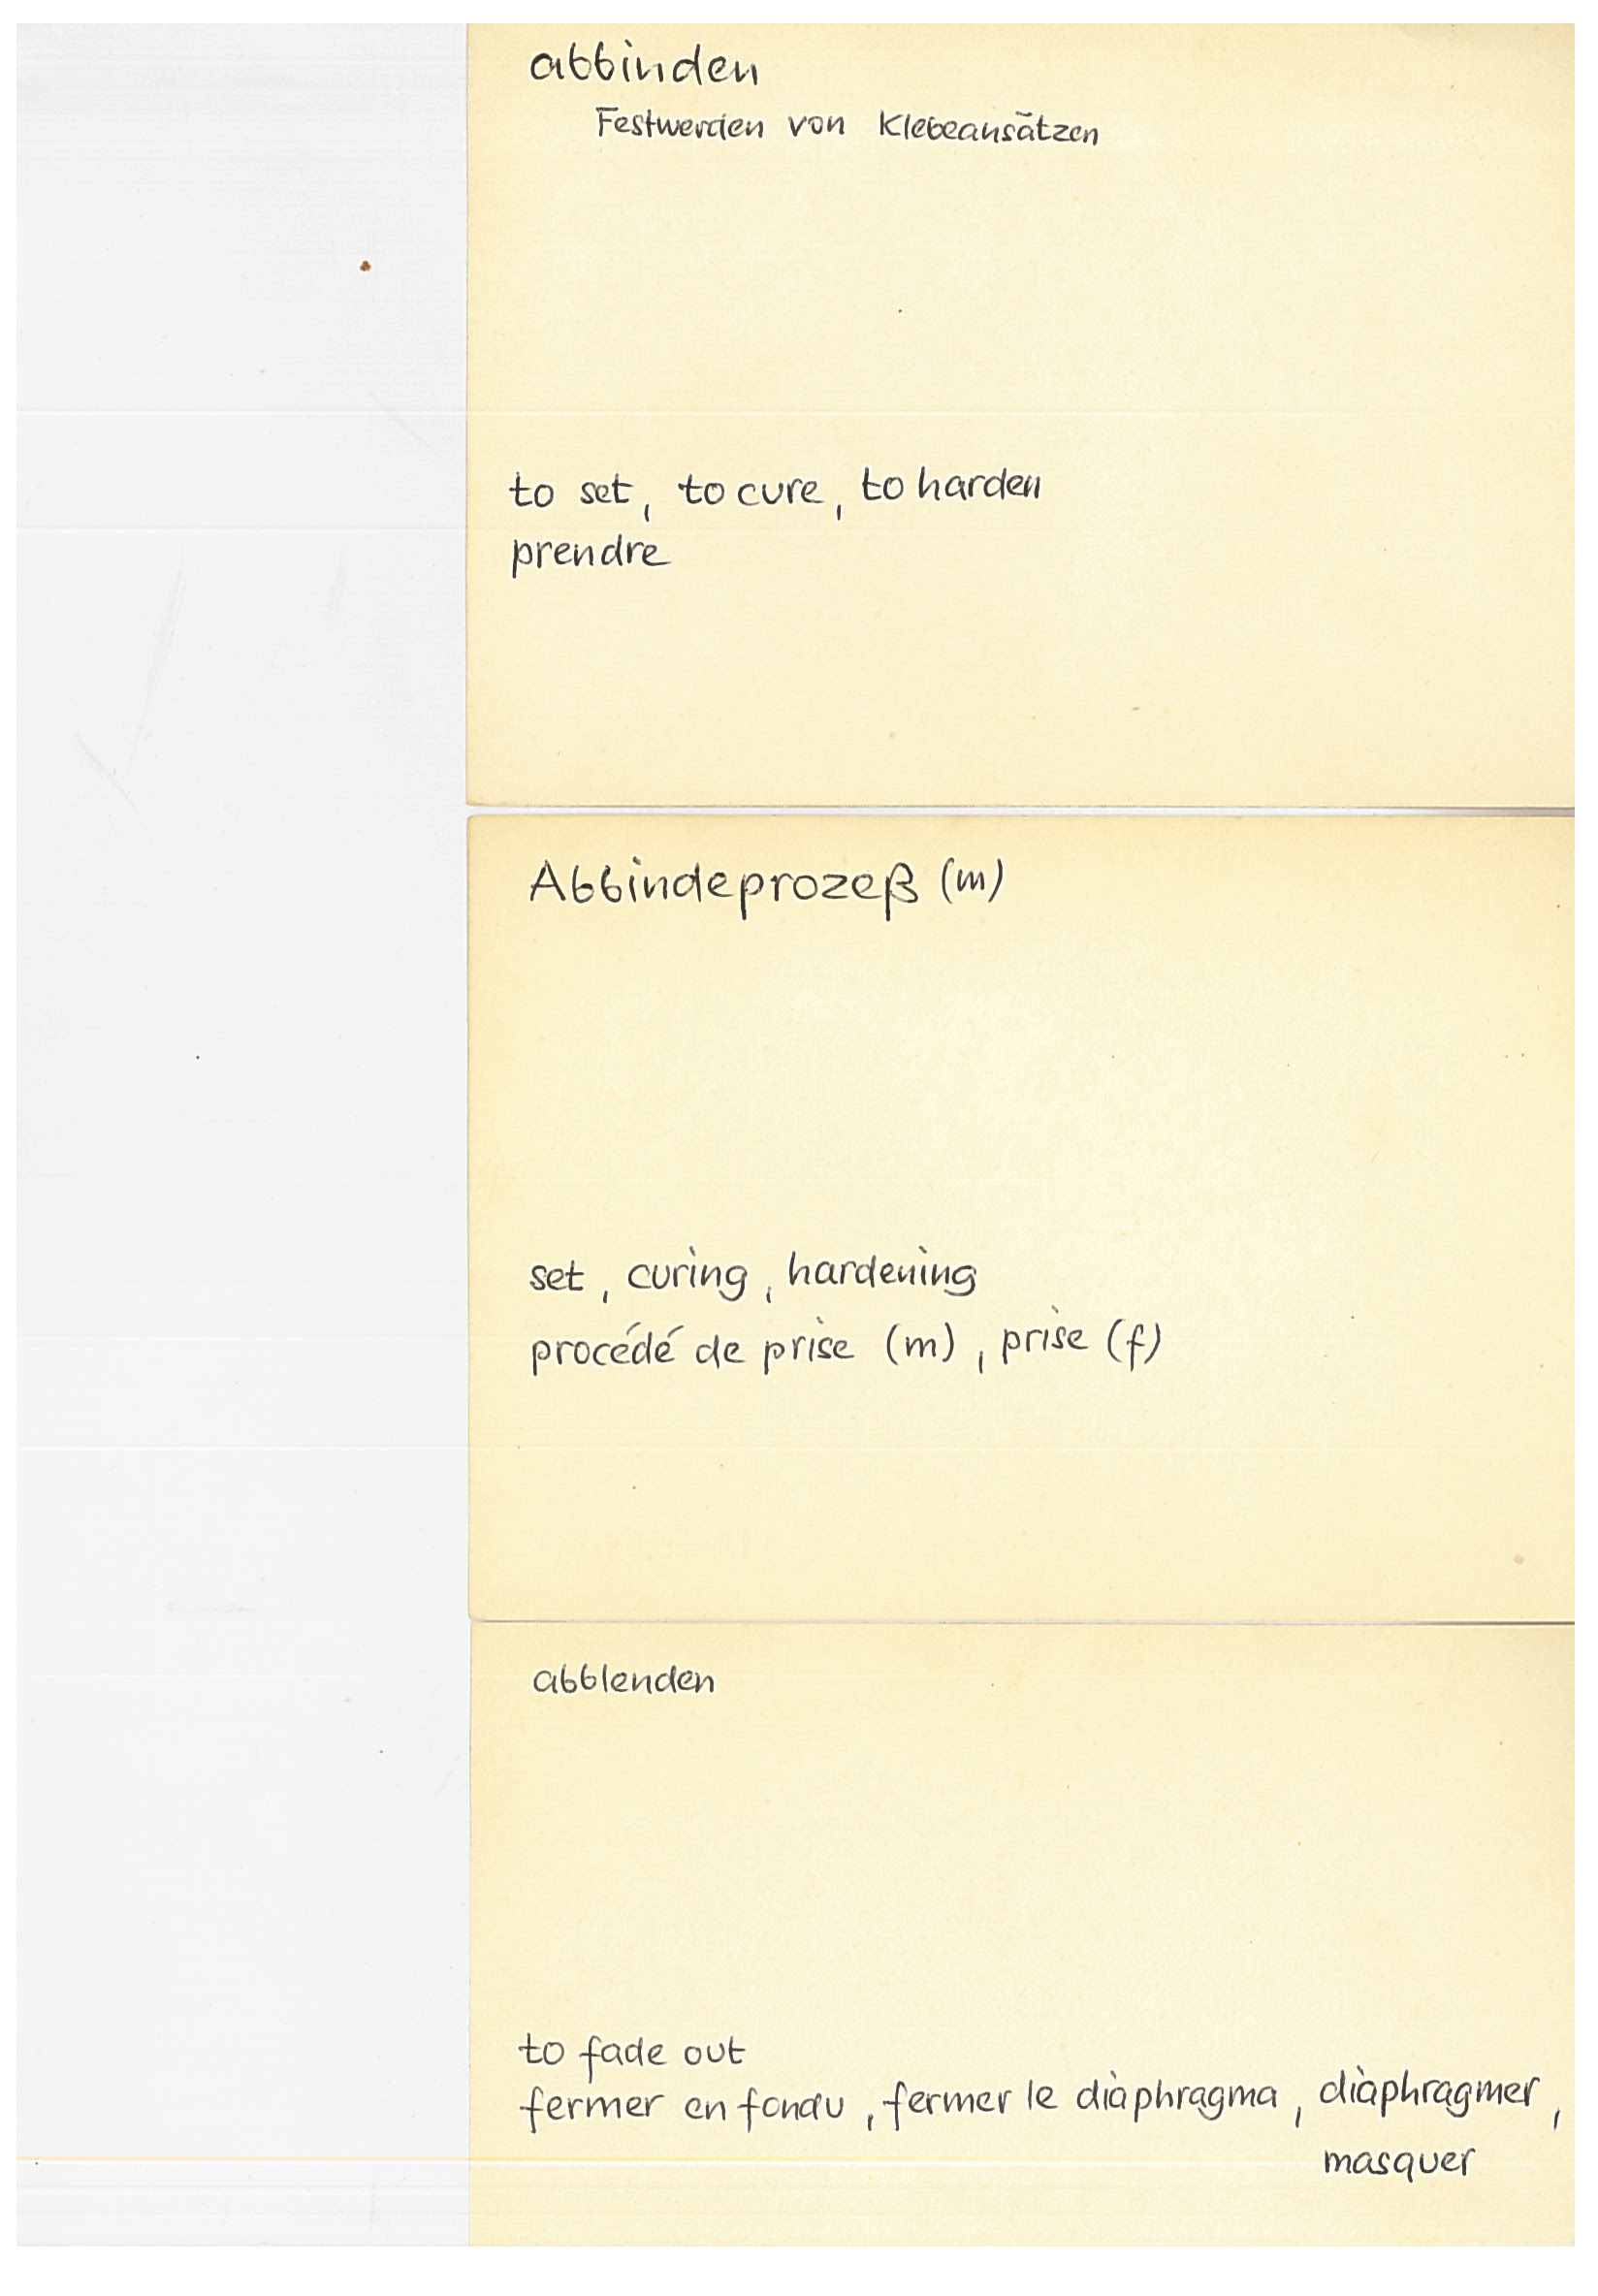 abbinden
Festwerden von Klebeansätzen
to set, to cure, to harden
prendre
Abbindeprozeß (m)
set, curing, hardening
procédé de prise (m), prise (f)
abblenden
to fade out
fermer en fondu, fermer le diaphragma, diaphragmer,
masquer